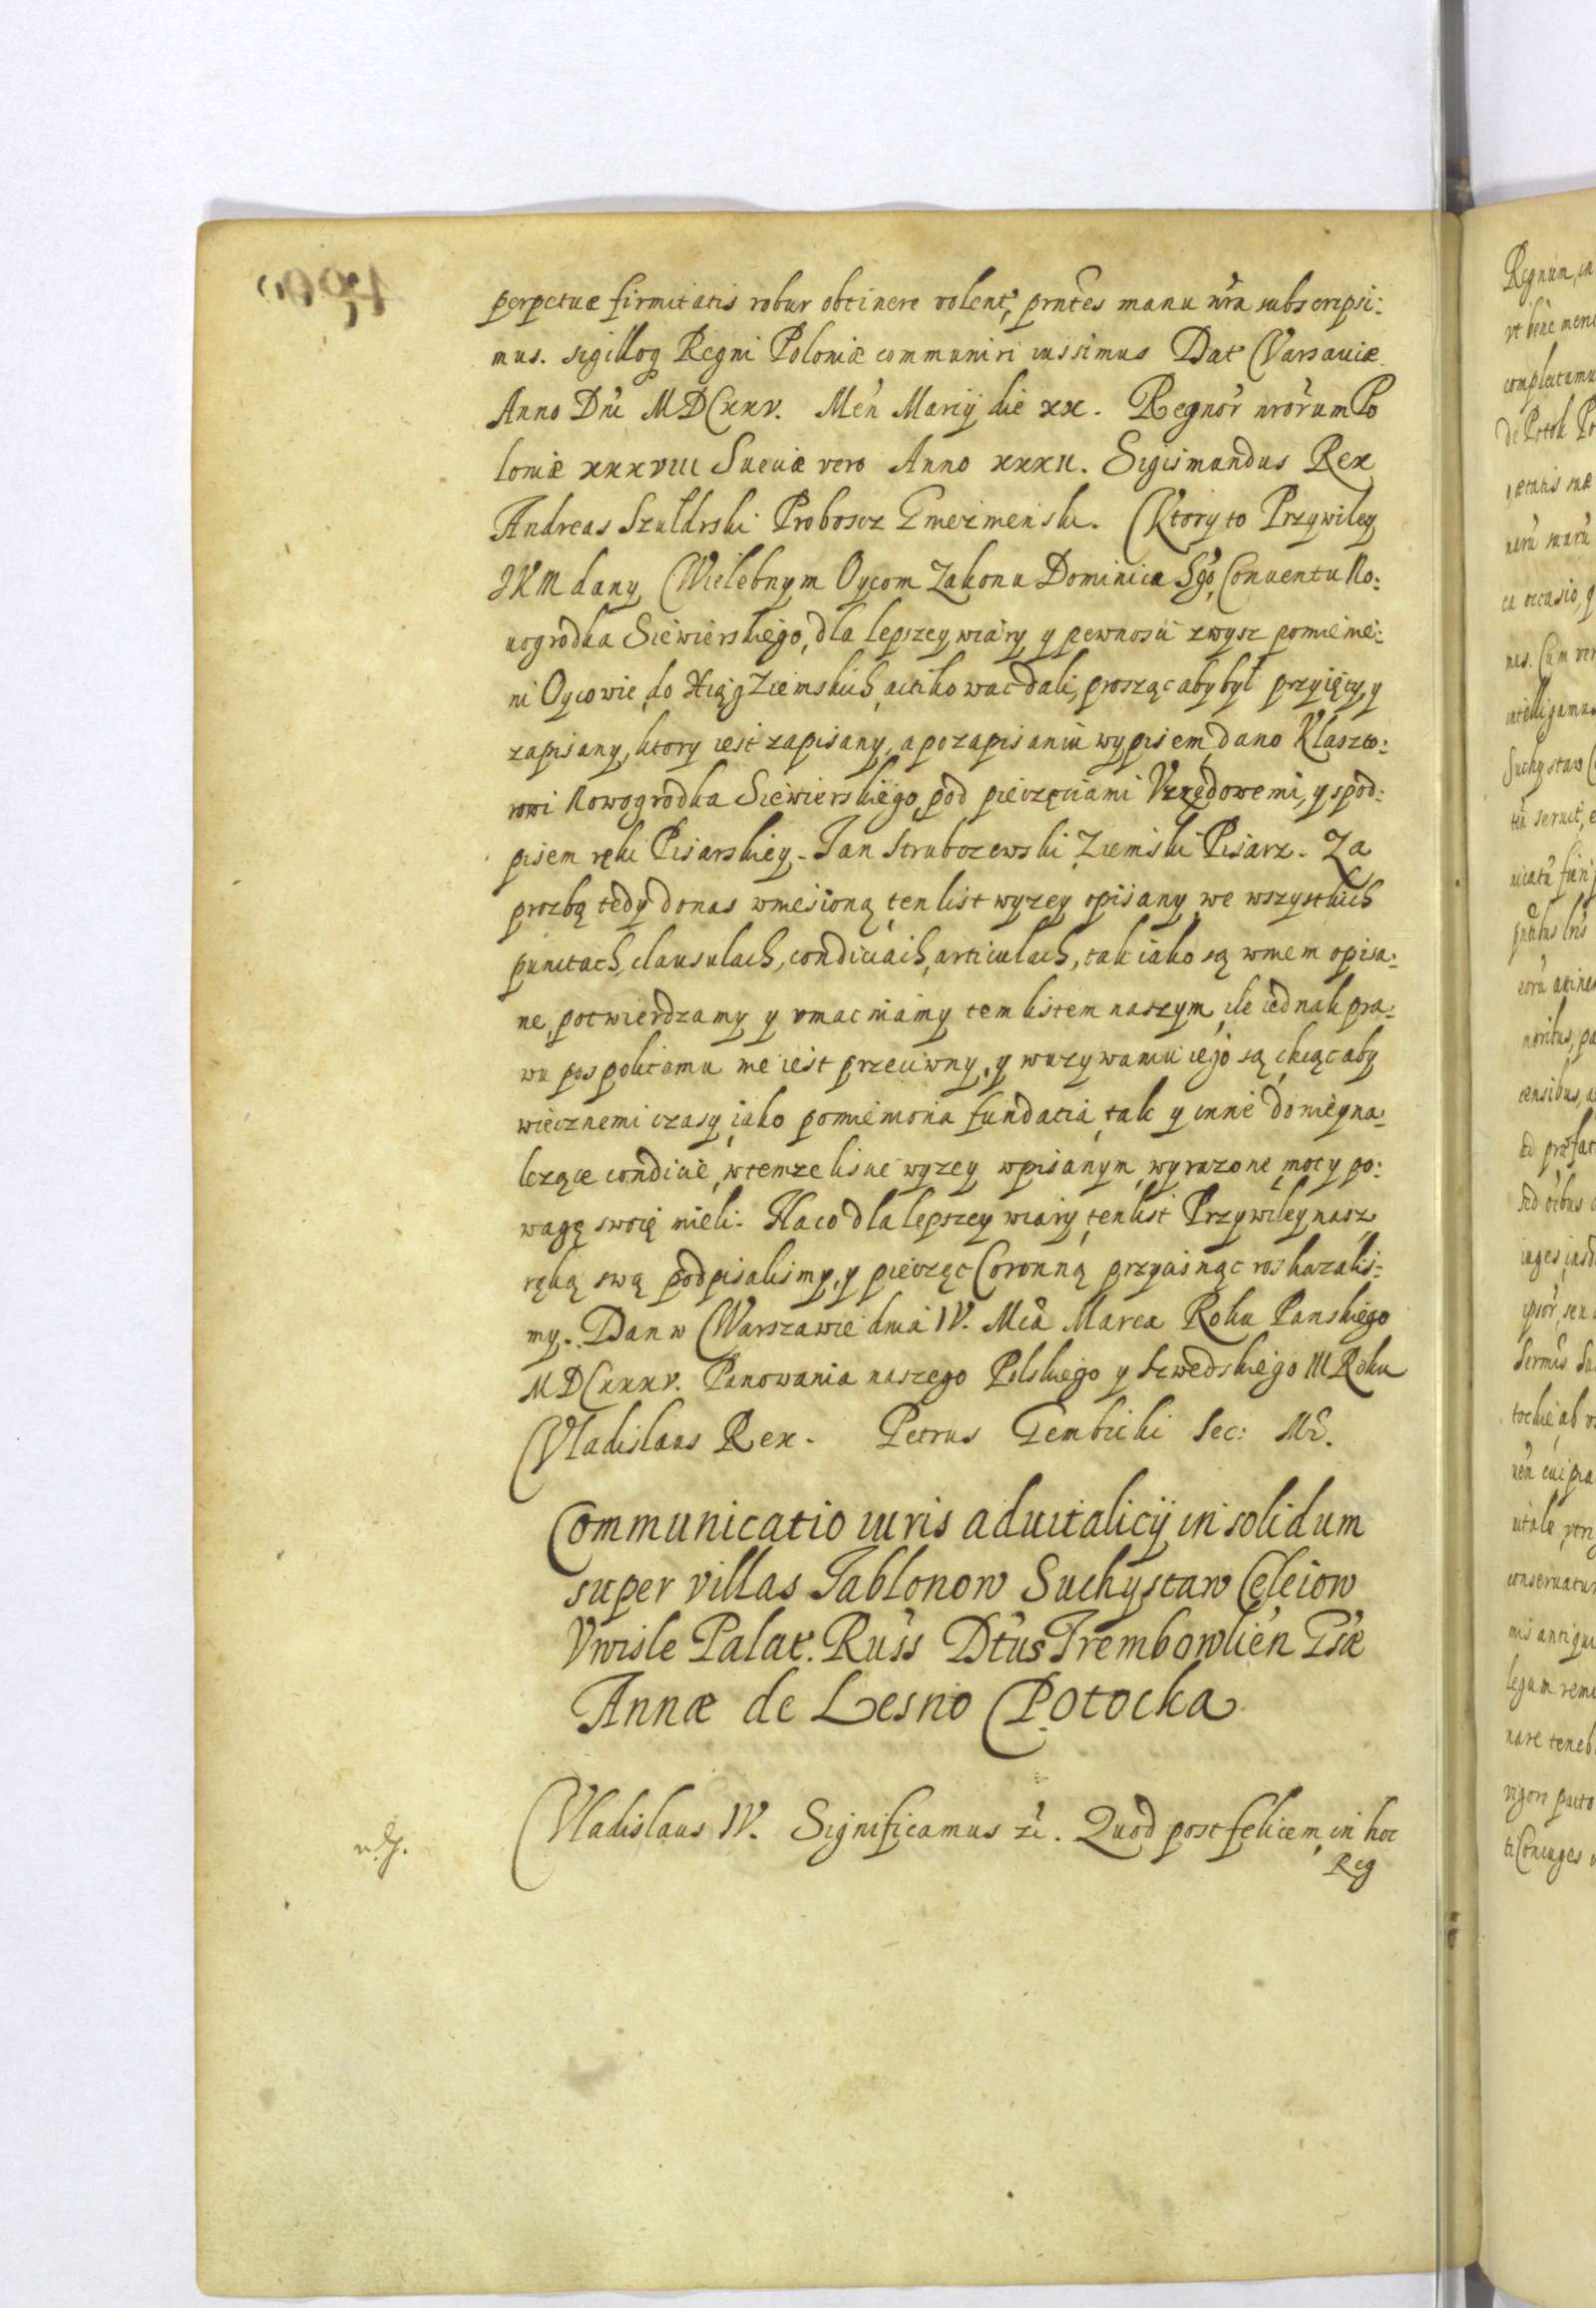 perpetuæ firmitatis robur obtinere volent, prntes manu nra subscripsi:
mus. sigilloq Regni Poloniæ communiri iussimus Dat Varsauiæ
Anno Dni MDCxxv. Men Marij die xx. Regnor nrorum Po
loniæ xxxviii Sueuiæ vero Anno xxxii. Sigismundus Rex
Andreas Szułdrski Proboscz Gnezmenski. Ktory to Przywiley
JKM dany Wielebnym Oycom Zakonu Dominica Sgo, Conuentu No:
uogrodka Siewierskiego, dla lepszey wiary y pewnosci zwysz pomieme:
ni Oycowie, do Xiąg Ziemskich actikowac dali, prosząc aby był przyięty, y
zapisany, ktory iest zapisany, a po zapisaniu wypisem dano Klaszto:
rowi Nowogrodka Siewierskiego, pod pieczęciami Vrzędowemi, y spod:
pisem ręki Pisarskiey. Jan Strubczewski Ziemski Pisarz. Za
prozbą tedy do nas wniesioną ten list wyzey opisany we wszystkich
punctach, clausulach, condiciach, articulach, tak iako są w niem opisa:
ne, potwierdzamy y vmacniamy tem listem naszym, ile iednak pra:
wu pospolitemu nie iest przeciwny, y w uzywaniu iego są, chcąc aby
wiecznemi czasy, iako pomieniona fundatia, tak y inne do niey na:
lezące condicie, w temze liscie wyzey wpisanym, wyrazone, mocy po:
wagę swoię mieli. Na co dla lepszey wiary ten list Przywiley nasz
ręką swą podpisalismy, y pieczęc Coronną przycisnąc roskazalis:
my. Dan w Warszawie dnia IV. Mca Marca Roku Panskiego
MDCxxxv. Panowania naszego Polskiego y Szwedskiego III Roku
Vladislaus Rex. Petrus Gembicki Sec: MR.
Communicatio iuris aduitalicij in solidum
super villas Jablonow Suchystaw Celeiow
Vwisle Palat. Russ Dtus Trembowlien Gsæ
Annæ de Lesno Potocka
Vladislaus IV. Significamus &. Quod post felicem, in hoc
Reg